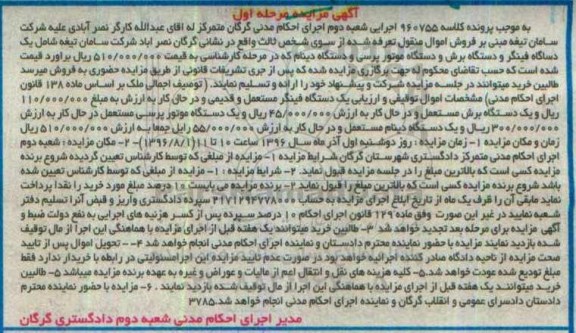 آگهی مزایده مرحله اول
به موجب پرونده کلاسه ۹۶۰۷۵۵ اجرایی شعبه دوم اجرای احکام مدنی گرگان متمرکز له اقای عبدالله کارگر نصر آبادی علیه شرکت
سامان تیغه مبنی بر فروش اموال منقول تعرفه شده از سوی شخص ثالث واقع در نشانی گرگان نصر اباد شرکت سامان تیغه شامل یک
دساگاه فینگر و دستگاه برش و دستگاه موتور پرسی و دستگاه دینام که در مرحله کارشناسی به قیمت ۵۱۰/۰۰۰/۰۰۰ ریال براورد قیمت
شده است که حسب تقاضای محکوم له جهت برگزاری مزایده شده که پس از جری تشریفات قانونی از طریق مزایده حضوری به فروش میرسد
طالبین خرید میتوانند در جلسه مزایده شرکت و پیشنهاد خود را ارائه و تسلیم نمایند. ( توصیف اجمالی ملک بر اساس ماده ۱۳۸ قانون
اجرای احکام مدنی) مشخصات اموال توقیفی و ارزیابی یک دستگاه فینگر مستعمل و قدیمی و در حال کار به ارزش به مبلغ ۱۱۰/۰۰۰/۰۰۰
ریال و یک دستگاه برش مستعمل و در حال کار به ارزش ۴۵/۰۰۰/۰۰۰ ریال و یک دستگاه موتور پرسی مستعمل در حال کار به ارزش
۳۰۰/۰۰۰/۰۰۰ ریال و یک دستگاه دینام مستعمل و در حال کار به ارزش ۵۵/۰۰۰/۰۰۰ رایل جمعا به ارزش ۵۱۰/۰۰۰/۰۰۰ ریال
زمان و مکان مزایده ۱- زمان مزایده : روز دوشنبه اول آذر ماه سال ۱۳۹۶ ساعت ۱۰ تا ۱۱ (۱۳۹۶/۸/۱)- ۲- مکان مزایده : شعبه دوم
اجرای احکام مدنی متمرکز دادگستری شهرستان گرگان شرایط مزایده ۱- مزایده از مبلغی که توسط کارشناس تعیین گردیده شروع برنده
مزایده کسی است که بالاترین مبلغ را در جلسه مزایده قبول نماید. ۲- شرایط مزایده : ۱- مزایده از مبلغی که توسط کارشناس تعیین شده
باشد شروع برنده مزایده کسی است که بالاترین مبلغ را قبول نماید ۲- برنده مزایده می بایست ۱۰ درصد مبلغ مورد خرید را نقدا پرداخت
نماید مابقی آن را ظرف یک ماه از تاریخ ابلاغ اجرای مزایده به حساب ۲۱۷۱۲۹۲۷۷۸۰۰۰ سپرده دادگستری واریز و قبض آنرا تسلیم دفتر
شعبه نمایید در غیر این صورت وفق ماده ۱۲۹ قانون اجرای احکام ۱۰ درصد سپرده پس از کسر هزنیه های اجرایی به نفع دولت ضبط و
آگهی مزایده برای مرحله بعد تجدید خواهد شد ۳- طالبین خرید میتوانند یک هفته قبل از اجرای مزایده با هماهنگی این اجرا از مال توقیف
شده بازدید نمایند مزایده با حضور نماینده محترم دادستان و نماینده اجرای احکام مدنی انجام خواهد شد ۴- - تحویل اموال پس از تایید
صحت مزایده از ناحیه دادگاه صادر کننده اجرائیه خواهد بود در صورت عدم تایید مزایده این اجرا مسئولیتی در رابطه با خریدار ندارد فقط
مبلغ تودیع شده عودت خواهد شد.۵- کلیه هزینه های نقل و انتقال اعم از مالیات و عوراض و غیره به عهده برنده مزایده میباشد ۵- طالبین
خرید میتوانند یک هفته قبل از اجرای مزایده با هماهنگی این اجرا از مال توقیف شده بازدید نمایند . ۶- مزایده با حضور نماینده محترم
دادستان دادسرای عمومی و انقلاب گرگان و نماینده اجرای احکام مدنی انجام خواهد شد.۳۷۸۵
مدیر اجرای احکام مدنی شعبه دوم دادگستری گرگان